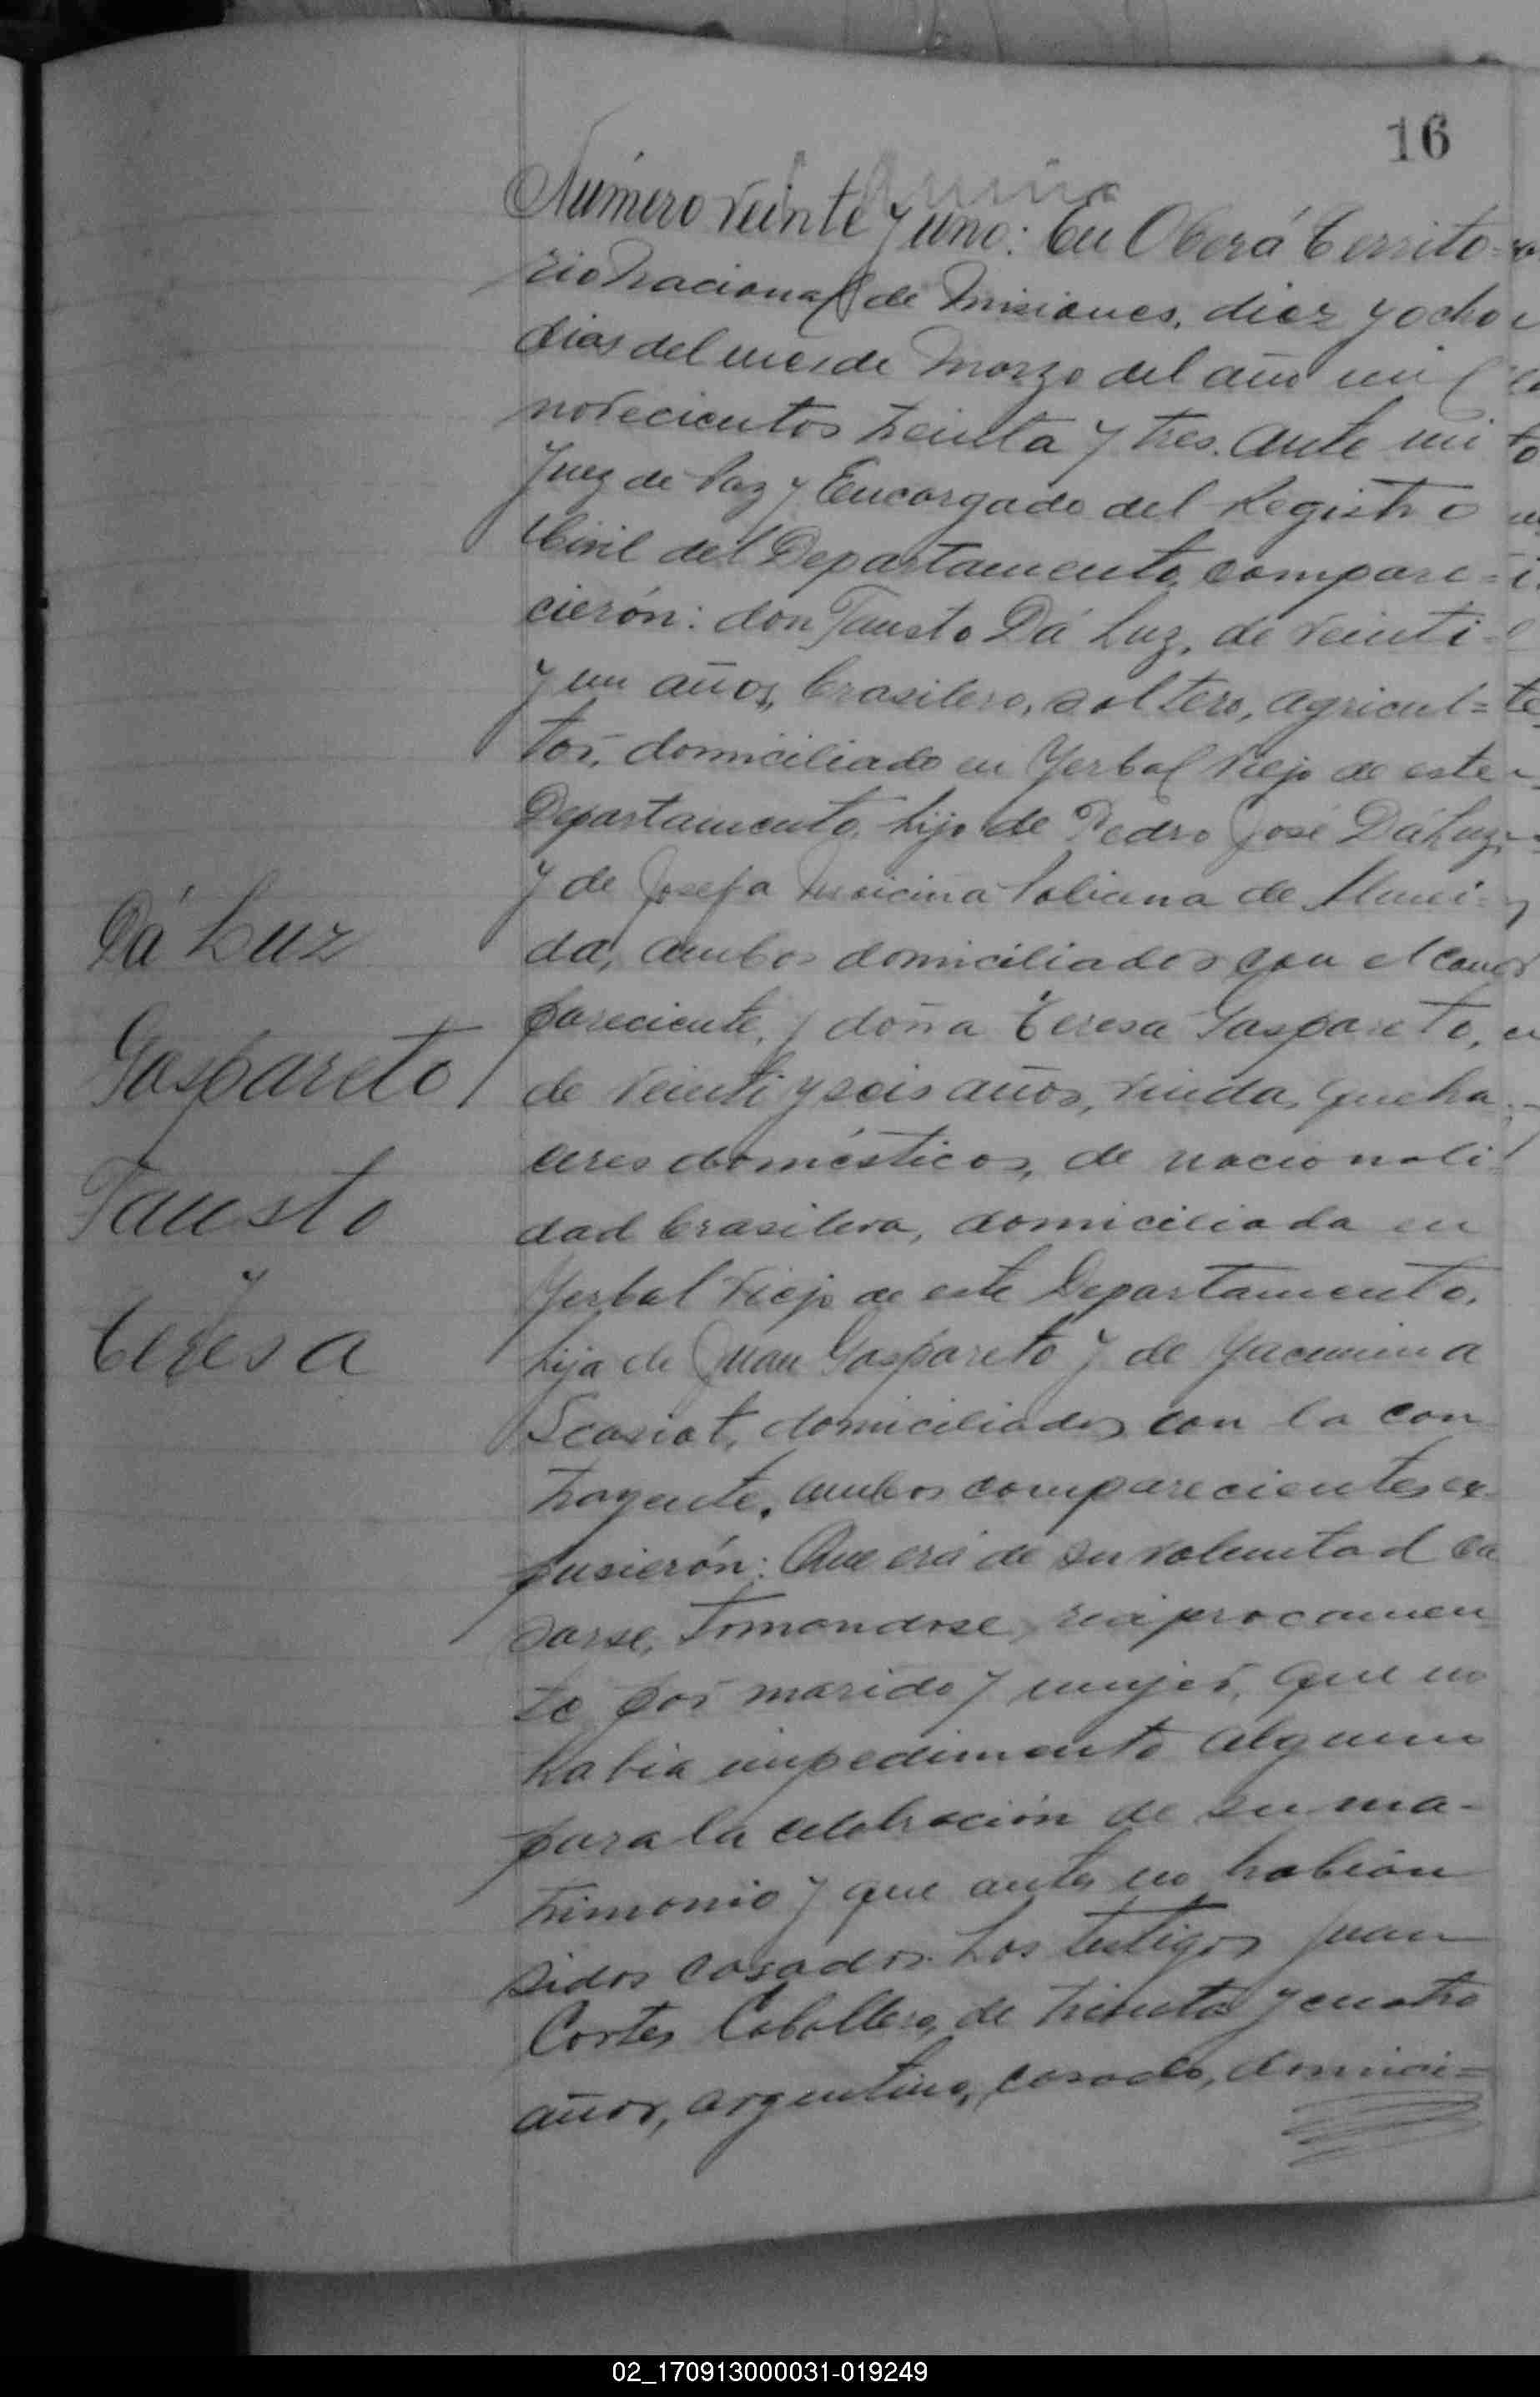 16
Número veinte y uno: En Oberá Territo-
rio Nacional de Misiones, diez y ocho
dias del mes de Marzo del año mil
novecientos treinta y tres. Ante mi
Juez de Paz y Encargado del Registro
Civil del Departamento, compare-
cierón: don Fausto Dá Luz, de veinti
y un años, brasilero, soltero, agricul=
tor, domiciliado en Yerbal Viejo de este
Departamento, hijo de Pedro José Dá Luz,
y de Josefa de Almei-
da, ambos domiciliados con el com
pareciente, y doña Teresa Gaspareto,
de veinti y seis años, viuda, queha-
ceres domésticos, de nacionali-
dad brasilera, domiciliada en
Yerbal Viejo de este Departamento,
hija de Juan Gaspareto y de Yacumina
domiciliados con la con
trayente, ambos comparecientes ex-
pusierón: Que era de su voluntad ca
sarse, tomandose reciprocamen
te por marido y mujer, que no
habia impedimento alguno
para la celebración de su ma-
trimonio y que antes no habian
sidos casados. Los testigos Juan
Cortes Caballero, de treinta y cuatro
años, argentino, casado, domici=
Dá Luz
Gaspareto
Fausto
y
Teresa
02_170913000031-019249